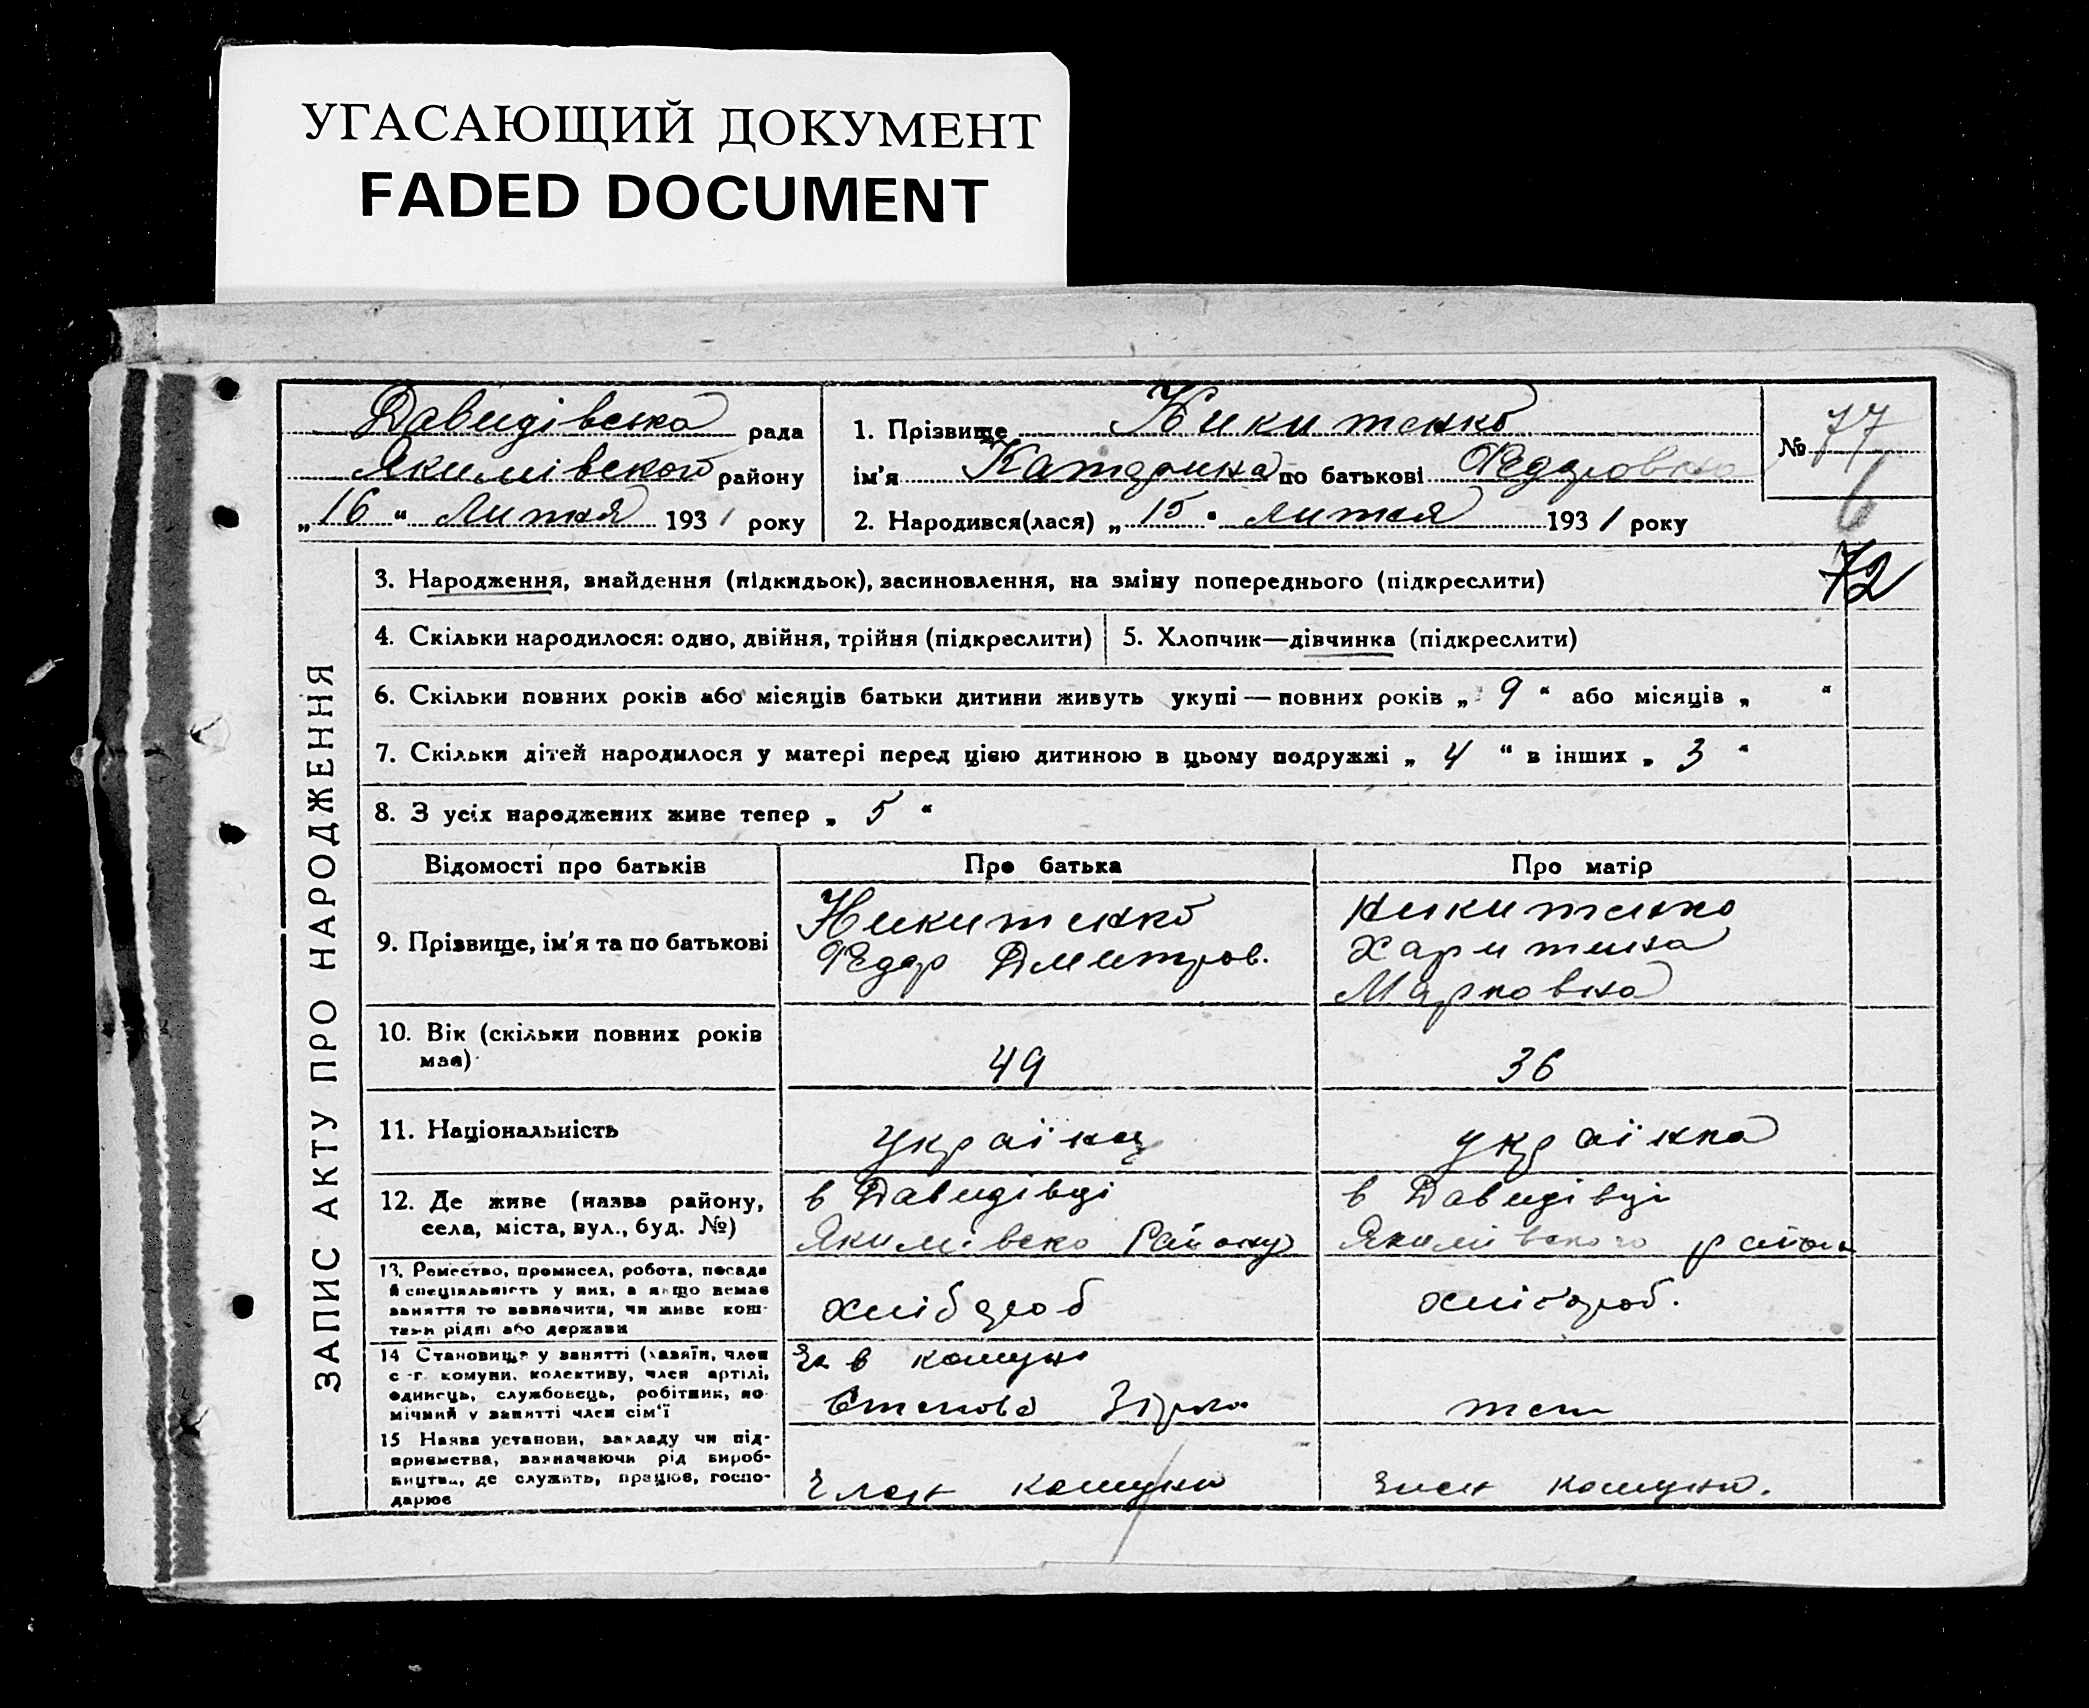 УГАСАЮЩИЙ ДОКУМЕНТ
FADED DOCUMENT
Давидівська рада
Якимівского району
„16“ Лютня 1931 року
1. Прізвище Никитенко
ім'я Катерина по батькові Федоровна
2. Народився(лася) „15“ лютня 1931 року
№ 77
6
72
ЗАПИС АКТУ ПРО НАРОДЖЕННЯ
3. Народження, знайдення (підкидьок), засиновлення, на зміну попереднього (підкреслити)
4. Скільки народилося: одно, двійня, трійня (підкреслити)
5. Хлопчик—дівчинка (підкреслити)
6. Скільки повних років або місяців батьки дитини живуть укупі — повних років „ 9 “ або місяців „ “
7. Скільки дітей народилося у матері перед цією дитиною в цьому подружжі „ 4 “ в інших „ 3 “
8. З усіх народжених живе тепер „ 5 “
Відомості про батьків
Про батька
Про матір
9. Прізвище, ім'я та по батькові
Никитенко
Федор Дмитров.
Никитенко
Харитина
Марковна
10. Вік (скільки повних років
має)
49
36
11. Національність
українц
українка
12. Де живе (назва району,
села, міста, вул., буд. №)
в Давидівці
Якимівско Району
в Давидівці
Якимівского район
13. Ремество, промисел, робота, посада
й спеціяльність у них, а якщо немає
заняття то зазначити, чи живе кош-
тами рідні або держави
хлібороб
хлібороб.
14 Становище у занятті (хазяїн, член
с.-г. комуни, колективу, член артілі,
одинець, службовець, робітник, по-
мічний у занятті член сім'ї
в комуні
Степова Зірка
теж
15 Назва установи, закладу чи під-
приємства, зазначаючи рід вироб-
ництва, де служить, працює, госпо-
дарює
Член комуни
Член комуни.